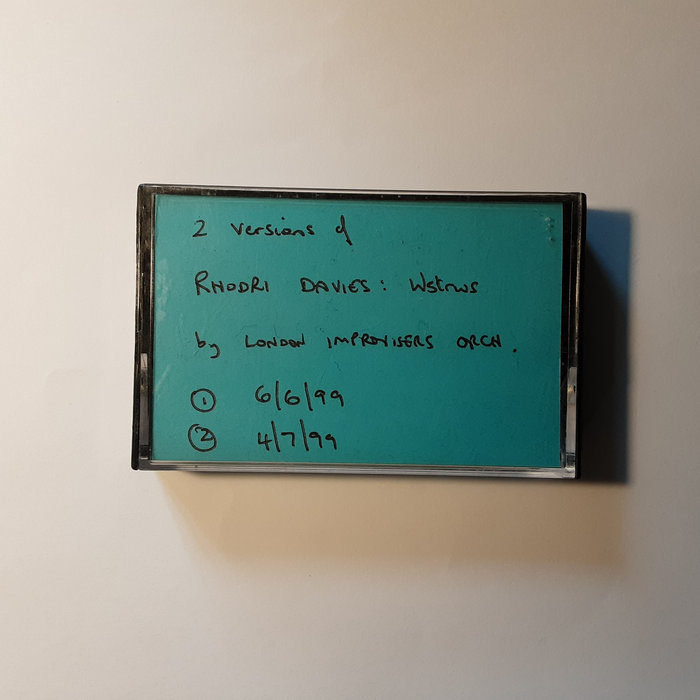 2 versions of
RHODRI DAVIES: Wstrws
by LONDON IMPROVISERS ORCH.
① 6/6/99
② 4/7/99